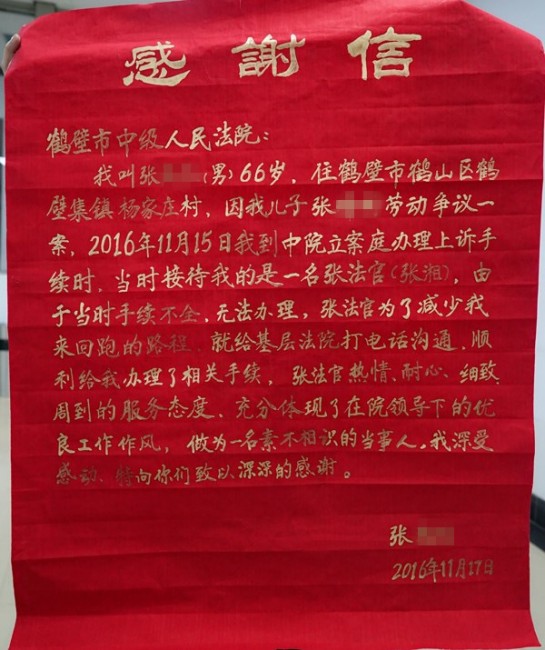 感謝信
鹤壁市中级人民法院：
我叫张(男)66岁，住鹤壁市鹤山区鹤
壁集镇杨家庄村，因我儿子张劳动争议一
案，2016年11月15日我到中院立案庭办理上诉手
续时，当时接待我的是一名张法官(张湘)，由
于当时手续不全、无法办理，张法官为了减少我
来回跑的路程、就给基层法院打电话沟通、顺
利给我办理了相关手续，张法官热情、耐心、细致、
周到的服务态度、充分体现了在院领导下的优
良工作作风，做为一名素不相识的当事人，我深受
感动、特向你们致以深深的感谢。
张
2016年11月17日